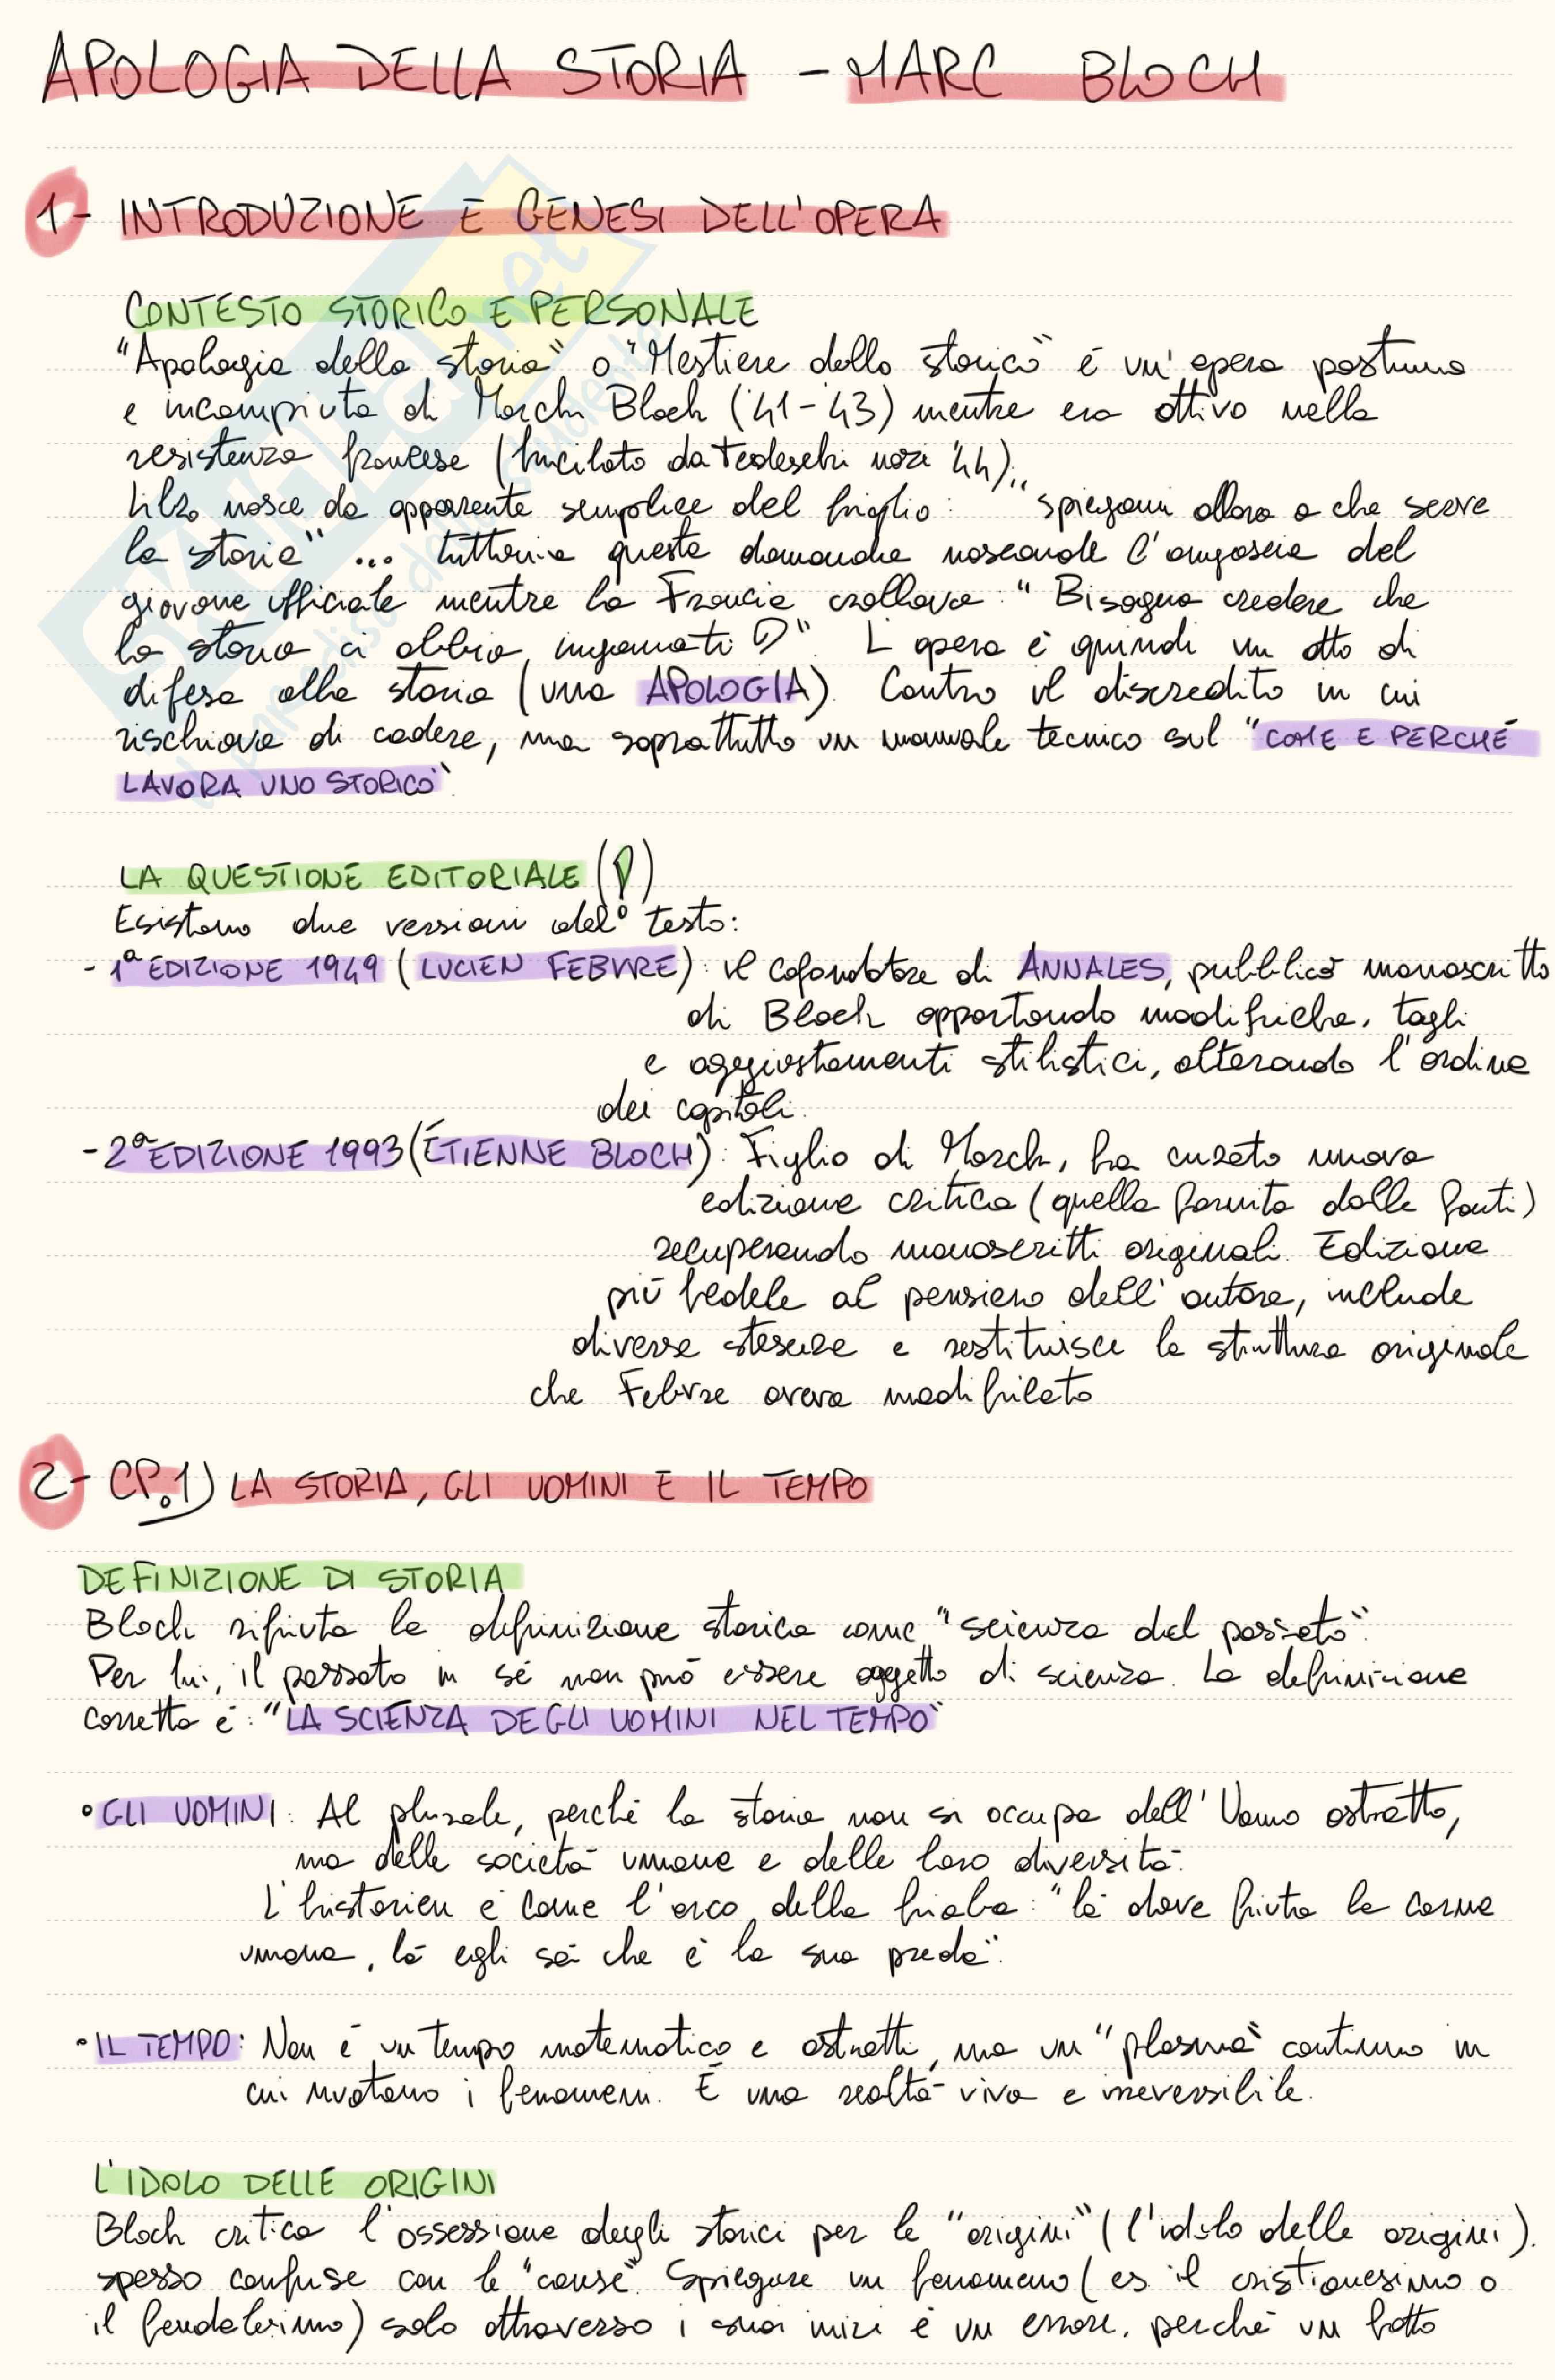 APOLOGIA DELLA STORIA - MARC BLOCH
1- INTRODUZIONE E GENESI DELL'OPERA
CONTESTO STORICO E PERSONALE
"Apologia della storia" o "Mestiere dello storico" é un'opera postuma
e incompiuta di March Bloch ('41-'43) mentre era attivo nella
resistenza francese (fucilato da Tedeschi nazi '44).
Libro nasce da apparente semplice del figlio: "spiegami allora a che serve
la storia" ... tuttavia questa domanda nasconde l'angoscia del
giovane ufficiale mentre la Francia crollava: "Bisogna credere che
la storia ci abbia ingannati?" L'opera è quindi un atto di
difesa alla storia (una APOLOGIA). Contro il discredito in cui
rischiava di cadere, ma soprattutto un manuale tecnico sul "COME E PERCHÉ
LAVORA UNO STORICO".
LA QUESTIONE EDITORIALE (!)
Esistono due versioni del testo:
- 1ª EDIZIONE 1949 (LUCIEN FEBVRE): il cofondatore di ANNALES, pubblicò manoscritto
di Bloch apportando modifiche, tagli
e aggiustamenti stilistici, alterando l'ordine
dei capitoli.
- 2ª EDIZIONE 1993 (ÉTIENNE BLOCH): Figlio di March, ha curato nuova
edizione critica (quella fornita dalle fonti)
recuperando manoscritti originali. Edizione
più fedele al pensiero dell'autore, include
diverse stesure e restituisce la struttura originale
che Febvre aveva modificato
2- CP.1) LA STORIA, GLI UOMINI E IL TEMPO
DEFINIZIONE DI STORIA
Bloch rifiuta la definizione storica come "scienza del passato".
Per lui, il passato in sé non può essere oggetto di scienza. La definizione
corretta è: "LA SCIENZA DEGLI UOMINI NEL TEMPO"
• GLI UOMINI: Al plurale, perché la storia non si occupa dell'Uomo astratto,
ma delle società umane e delle loro diversità.
L'historien è come l'orco della fiaba: "là dove fiuta la carne
umana, là egli sà che è la sua preda".
• IL TEMPO: Non è un tempo matematico e astratti, ma un "plasma" continuo in
cui nuotano i fenomeni. È una realtà viva e irreversibile.
L'IDOLO DELLE ORIGINI
Bloch critica l'ossessione degli storici per le "origini" (l'idolo delle origini).
spesso confuse con le "cause". Spiegare un fenomeno (es il cristianesimo o
il feudalesimo) solo attraverso i suoi inizi è un errore. perché un fatto